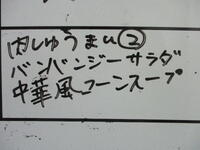 肉しゅうまい②
バンバンジーサラダ
中華風コーンスープ